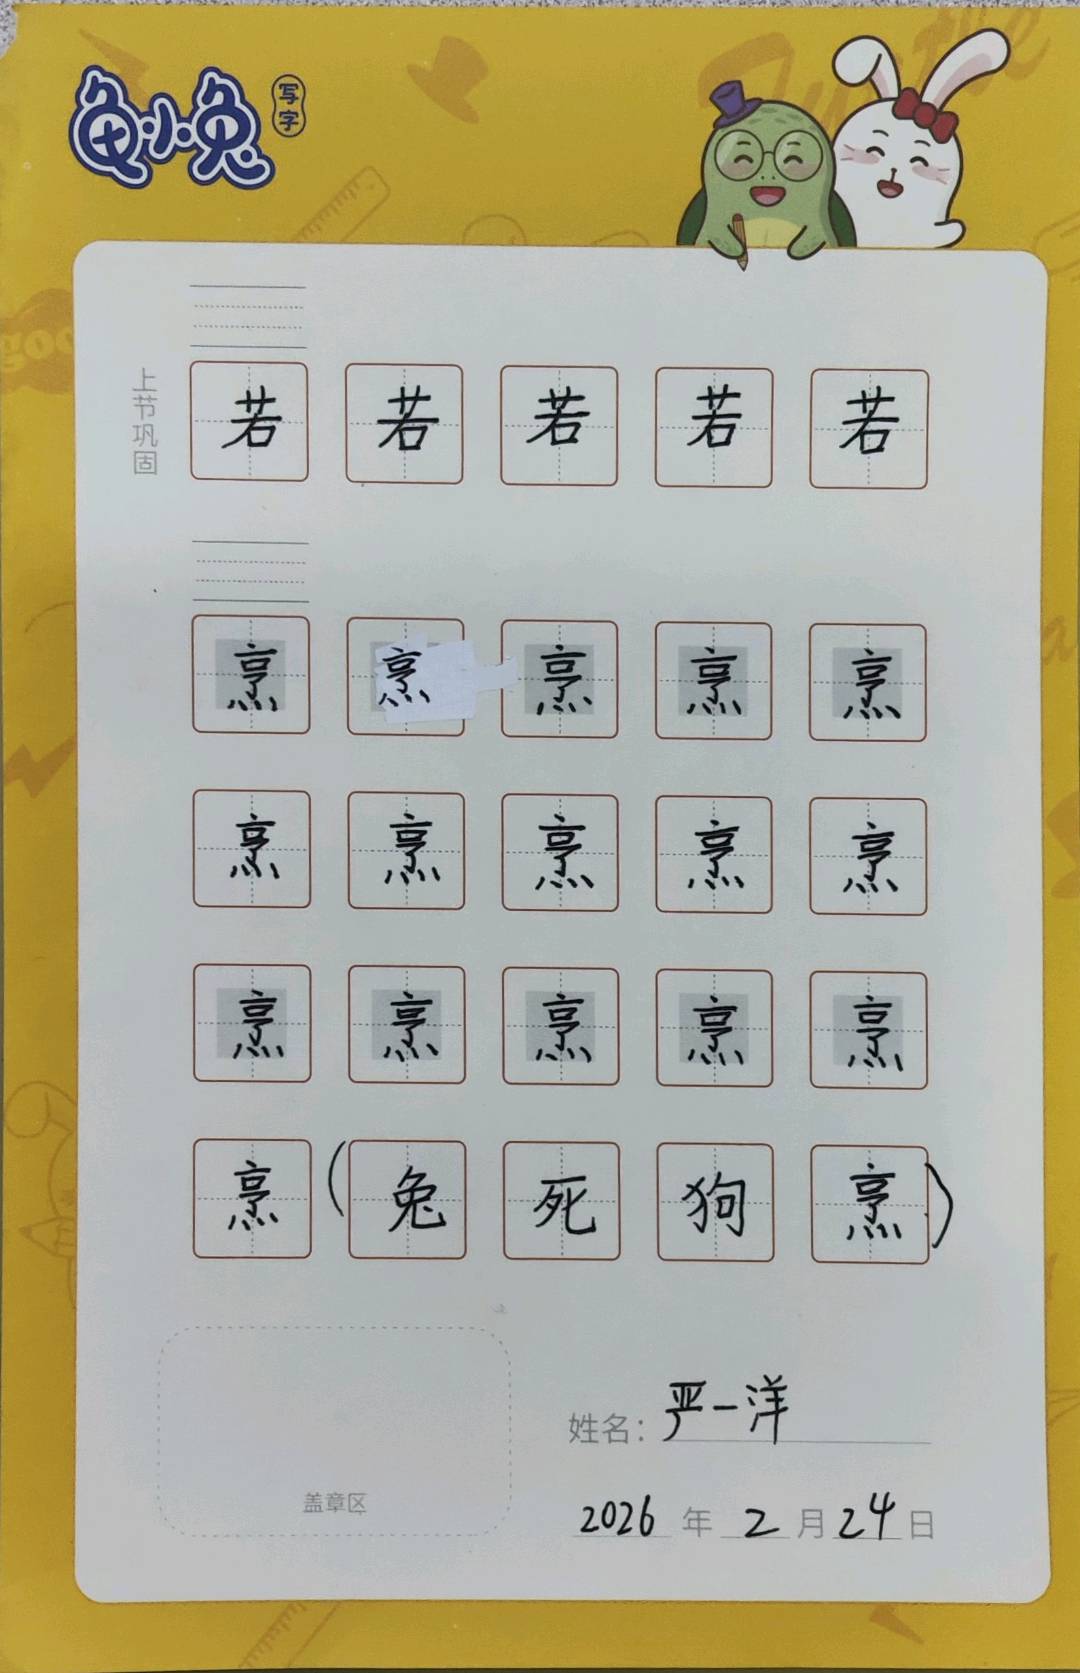 龟小兔写字
上节巩固
若 若 若 若 若
烹 烹 烹 烹 烹
烹 烹 烹 烹 烹
烹 烹 烹 烹 烹
烹 (兔 死 狗 烹)
姓名：严一洋
盖章区
2026 年 2 月 24 日